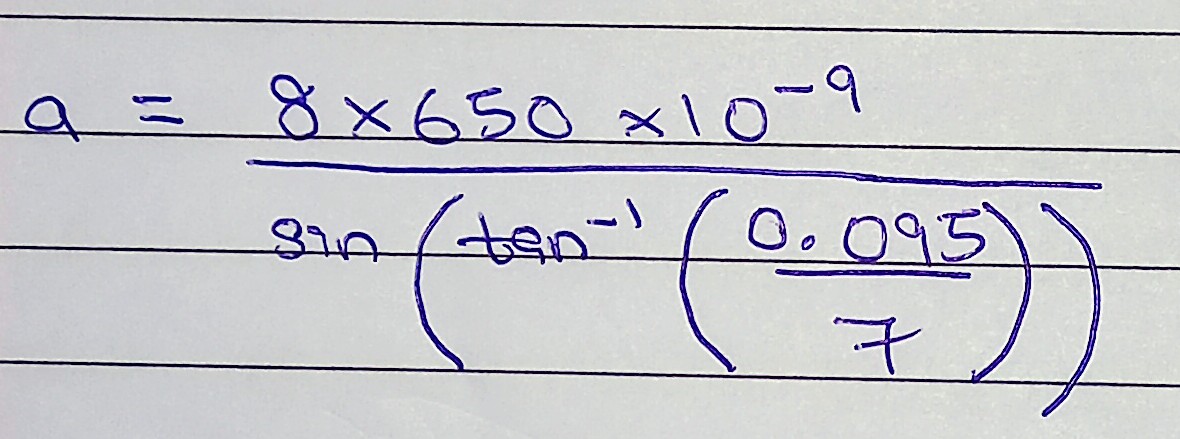 a = 8×650×10⁻⁹
sin(tan⁻¹(0.095
7))